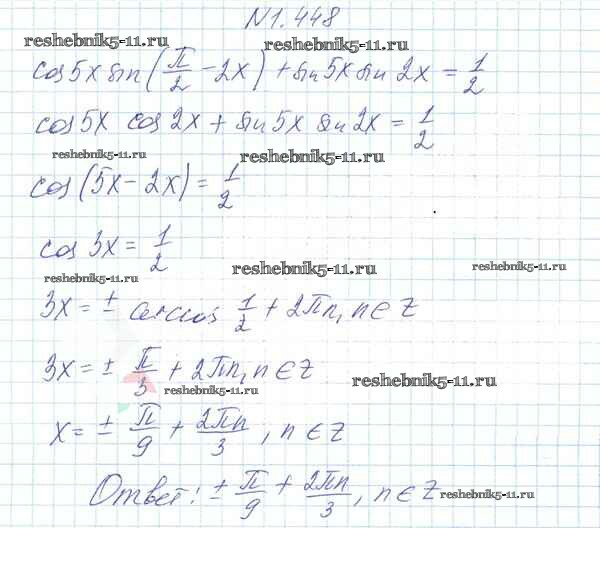 N1.448
reshebnik5-11.ru reshebnik5-11.ru
cos5x sin(π/2 - 2x) + sin5x sin 2x = 1/2
cos5x cos2x + sin5x sin 2x = 1/2
reshebnik5-11.ru reshebnik5-11.ru
cos(5x - 2x) = 1/2
cos 3x = 1/2
reshebnik5-11.ru reshebnik5-11.ru reshebnik5-11.ru
3x = ± arccos 1/2 + 2πn, n ∈ Z
3x = ± π/3 + 2πn, n ∈ Z
reshebnik5-11.ru reshebnik5-11.ru
x = ± π/9 + 2πn/3, n ∈ Z
Ответ: ± π/9 + 2πn/3, n ∈ Z
reshebnik5-11.ru